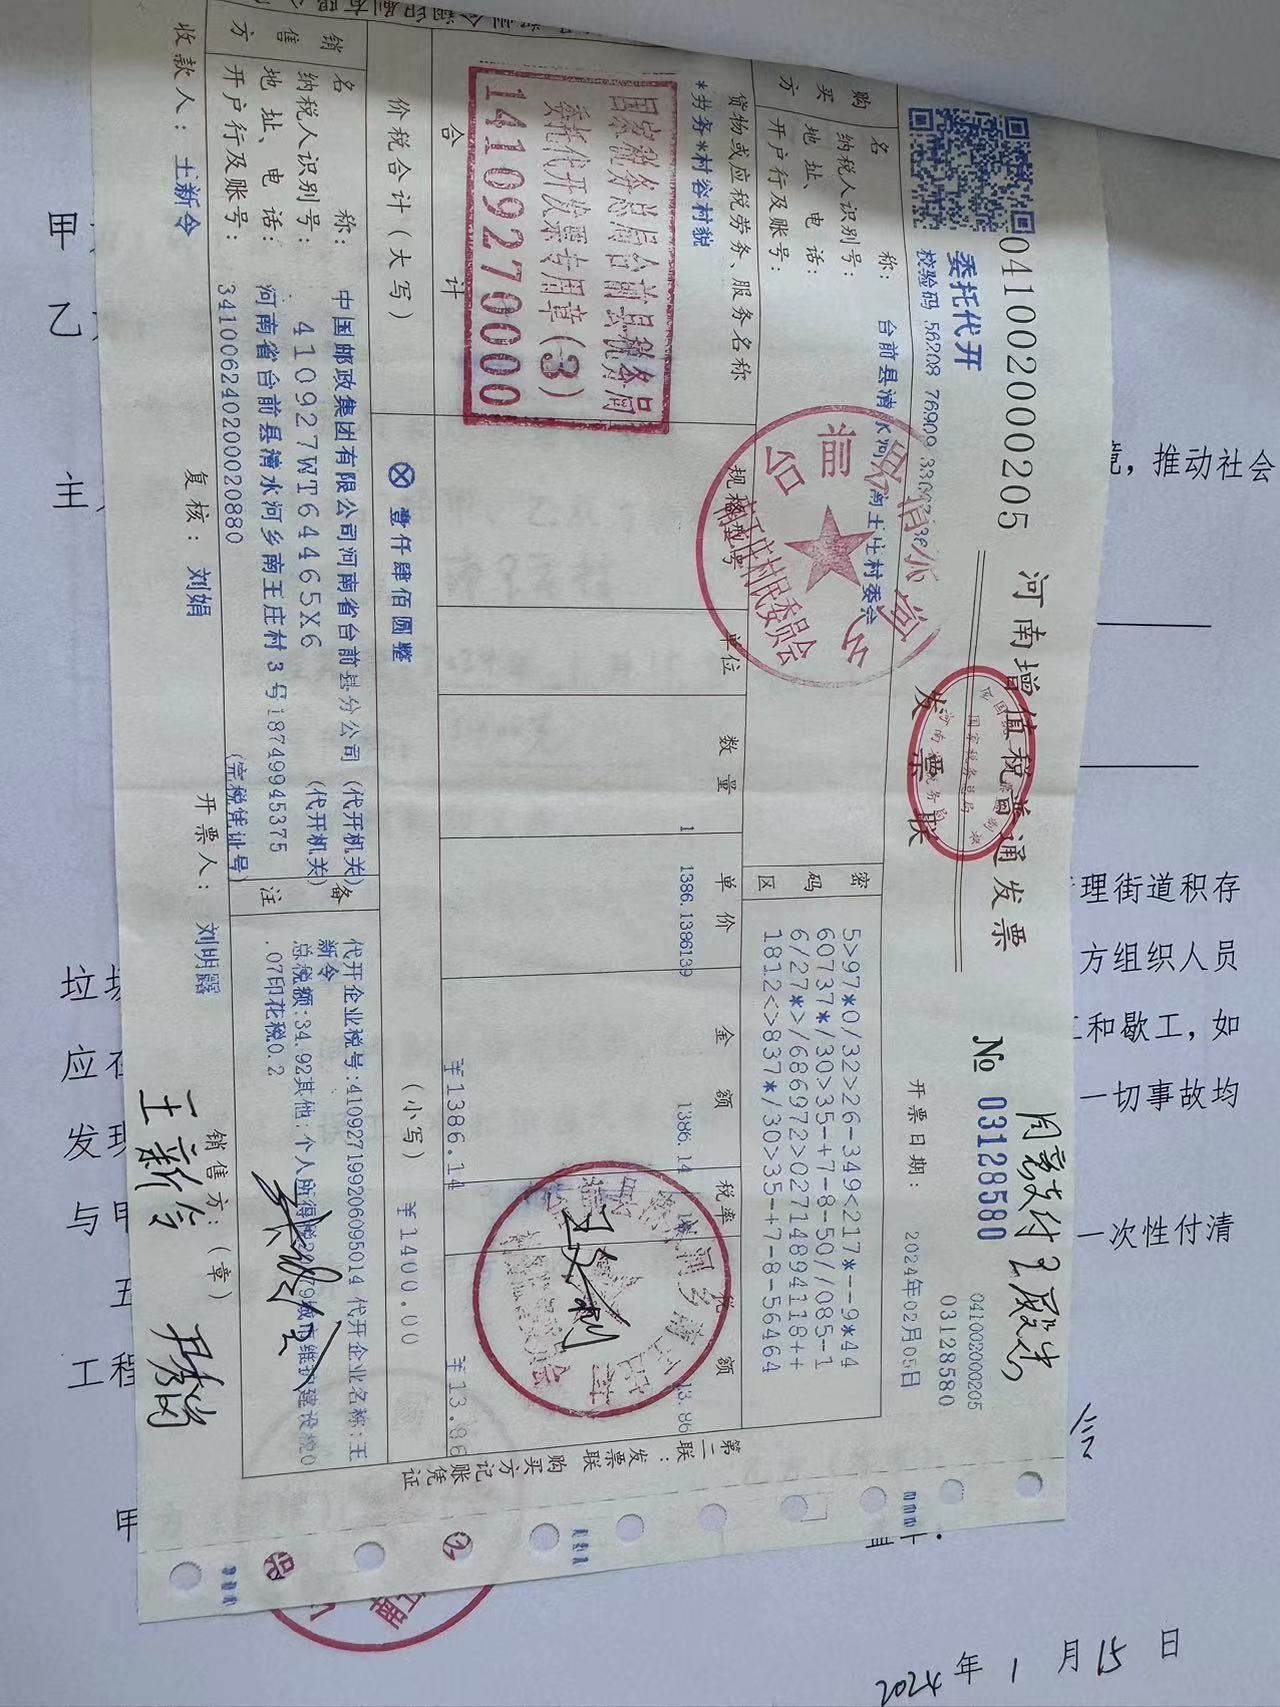 041002000205
河南增值税普通发票
发票联
№ 03128580
041002000205
03128580
委托代开
校验码 56208 76909
开票日期：
2024年02月05日
同意支付
购买方
名称：
台前县清水河
纳税人识别号：
地址、电话：
开户行及账号：
密码区
5>97*0/32>26-349<217*--9*44
60737*/30>35-+7-8-50//085-1
6/27*>/686972>0271489411 8++
1812<>837*/30>35-+7-8-56464
货物或应税劳务、服务名称
规格型号
单位
数量
单价
金额
税率
税额
*劳务*村容村貌
1
1386.1386139
1386.14
13.86
合计
￥1386.14
￥13.86
价税合计（大写）
ⓧ 壹仟肆佰圆整
（小写）
￥1400.00
国家税务总局台前县税务局
委托代开发票专用章(3)
14109270000
南王庄村民委员会
销售方
名称：
中国邮政集团有限公司河南省台前县分公司（代开机关）
纳税人识别号：
410927WT64465X6
（代开机关）
地址、电话：
河南省台前县清水河乡南王庄村3号18749945375
开户行及账号：
341006240200020880
（完税凭证号）
备注
代开企业税号:410927199206095014 代开企业名称:王
新令
总税额:34.92其他:个人所得税
.07印花税0.2
收款人：
王新令
复核：
刘娟
开票人：
刘明露
销售方：（章）
王新令
第二联：发票联 购买方记账凭证
甲
乙
主
境，推动社会
理街道积存
垃圾
方组织人员
应在
和歇工，如
发现
一切事故均
与甲
一次性付清
五
工程
甲
2024年1月15日